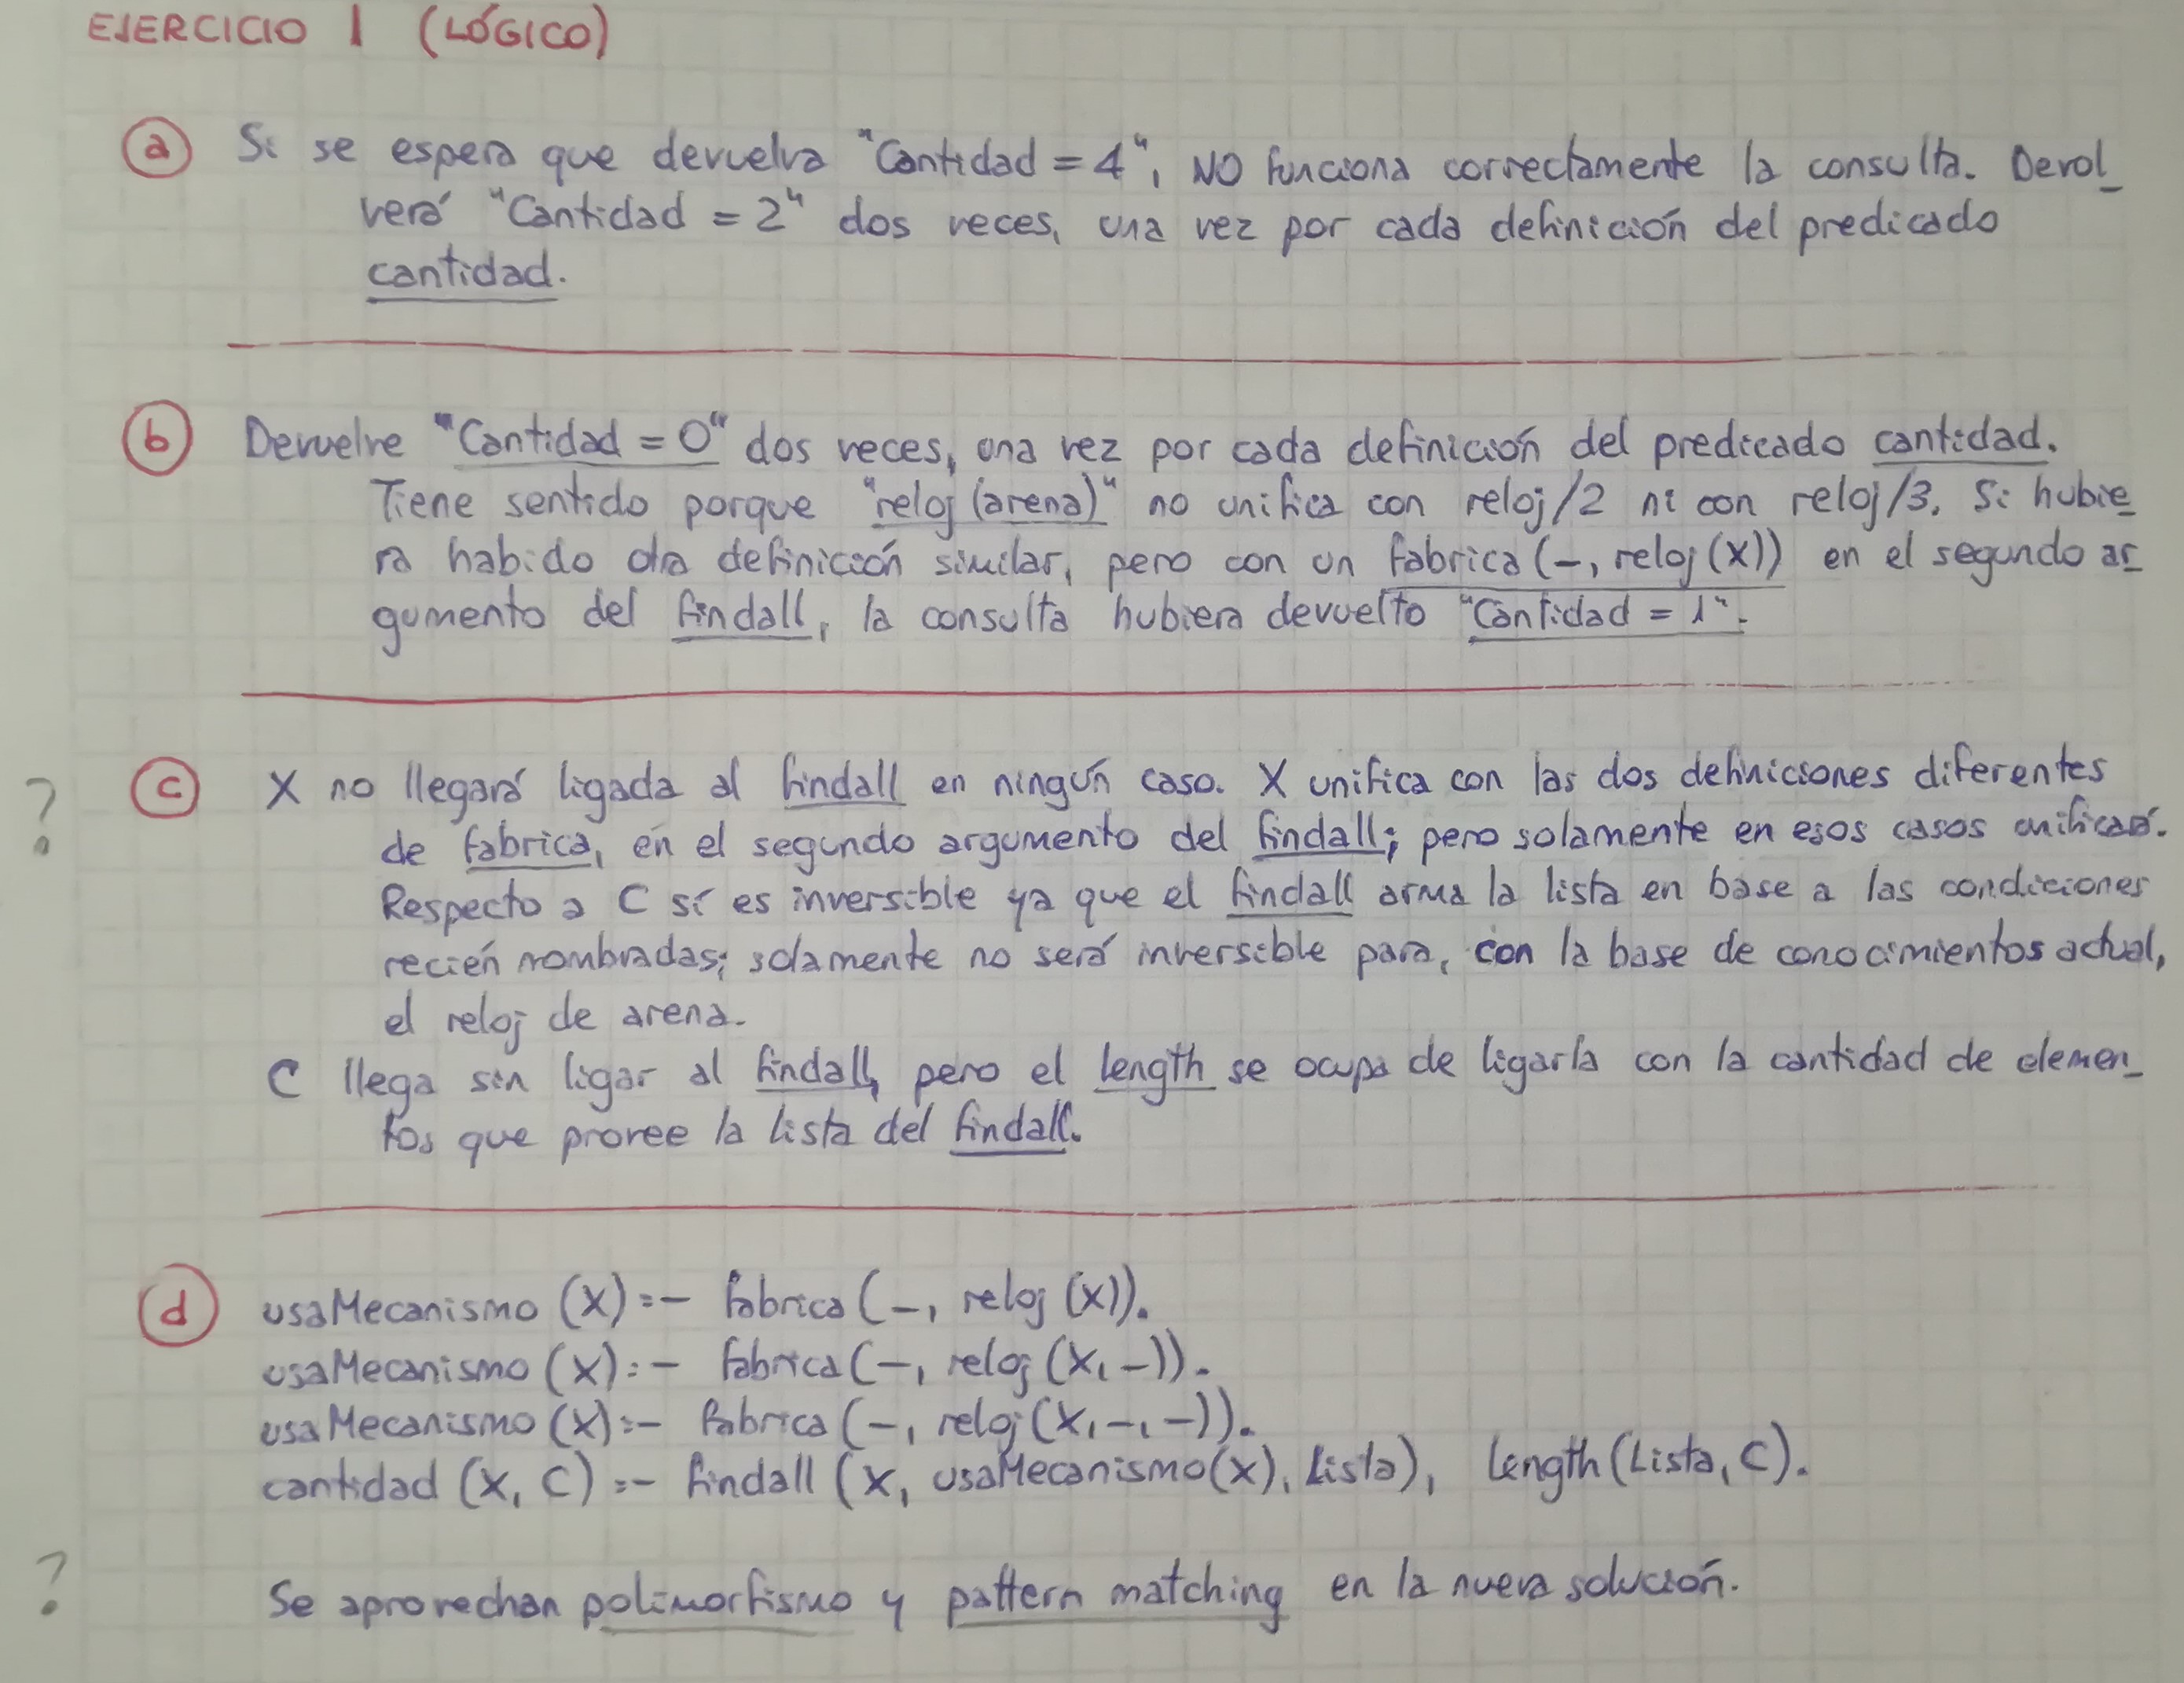 EJERCICIO 1 (LÓGICO)
a Si se espera que devuelva "Cantidad = 4", NO funciona correctamente la consulta. Devol_
verá "Cantidad = 2" dos veces, una vez por cada definición del predicado
cantidad.
b Devuelve "Cantidad = 0" dos veces, una vez por cada definición del predicado cantidad.
Tiene sentido porque "reloj (arena)" no unifica con reloj/2 ni con reloj/3. Si hubie_
ra habido otra definición similar, pero con un fabrica (_, reloj (X)) en el segundo ar_
gumento del findall, la consulta hubiera devuelto "Cantidad = 1".
?
c X no llegará ligada al findall en ningún caso. X unifica con las dos definiciones diferentes
de fabrica, en el segundo argumento del findall; pero solamente en esos casos unificará.
Respecto a C sí es inversible ya que el findall arma la lista en base a las condiciones
recién nombradas; solamente no será inversible para, con la base de conocimientos actual,
el reloj de arena.
C llega sin ligar al findall, pero el length se ocupa de ligarla con la cantidad de elemen_
tos que provee la lista del findall.
d usaMecanismo (X) :- fabrica (_, reloj (X)).
usaMecanismo (X) :- fabrica (_, reloj (X, _)).
usaMecanismo (X) :- fabrica (_, reloj (X, _, _)).
cantidad (X, C) :- findall (X, usaMecanismo(X), Lista), length (Lista, C).
?
Se aprovechan polimorfismo y pattern matching en la nueva solución.